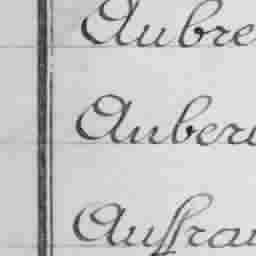 Aubre
Auberi
Auffrai